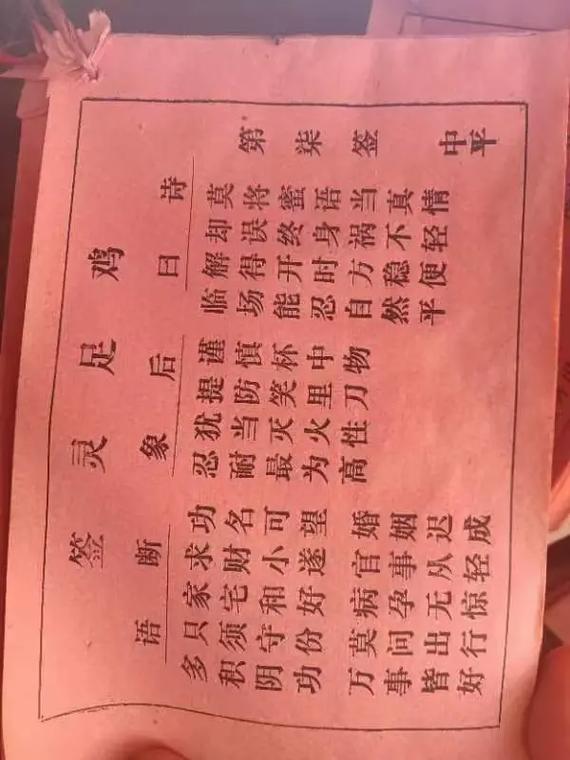 鸡足灵签
第柒签 中平
诗曰
莫将蜜语当真情
却误终身祸不轻
解得开时方稳便
临场能忍自然平
后象
谨慎杯中物
提防笑里刀
犹当灭火性
忍耐最为高
断语
功名可望 婚姻迟成
求财小遂 官事从轻
家宅和好 病孕无惊
只须守份 莫问出行
多积阴功 万事皆好